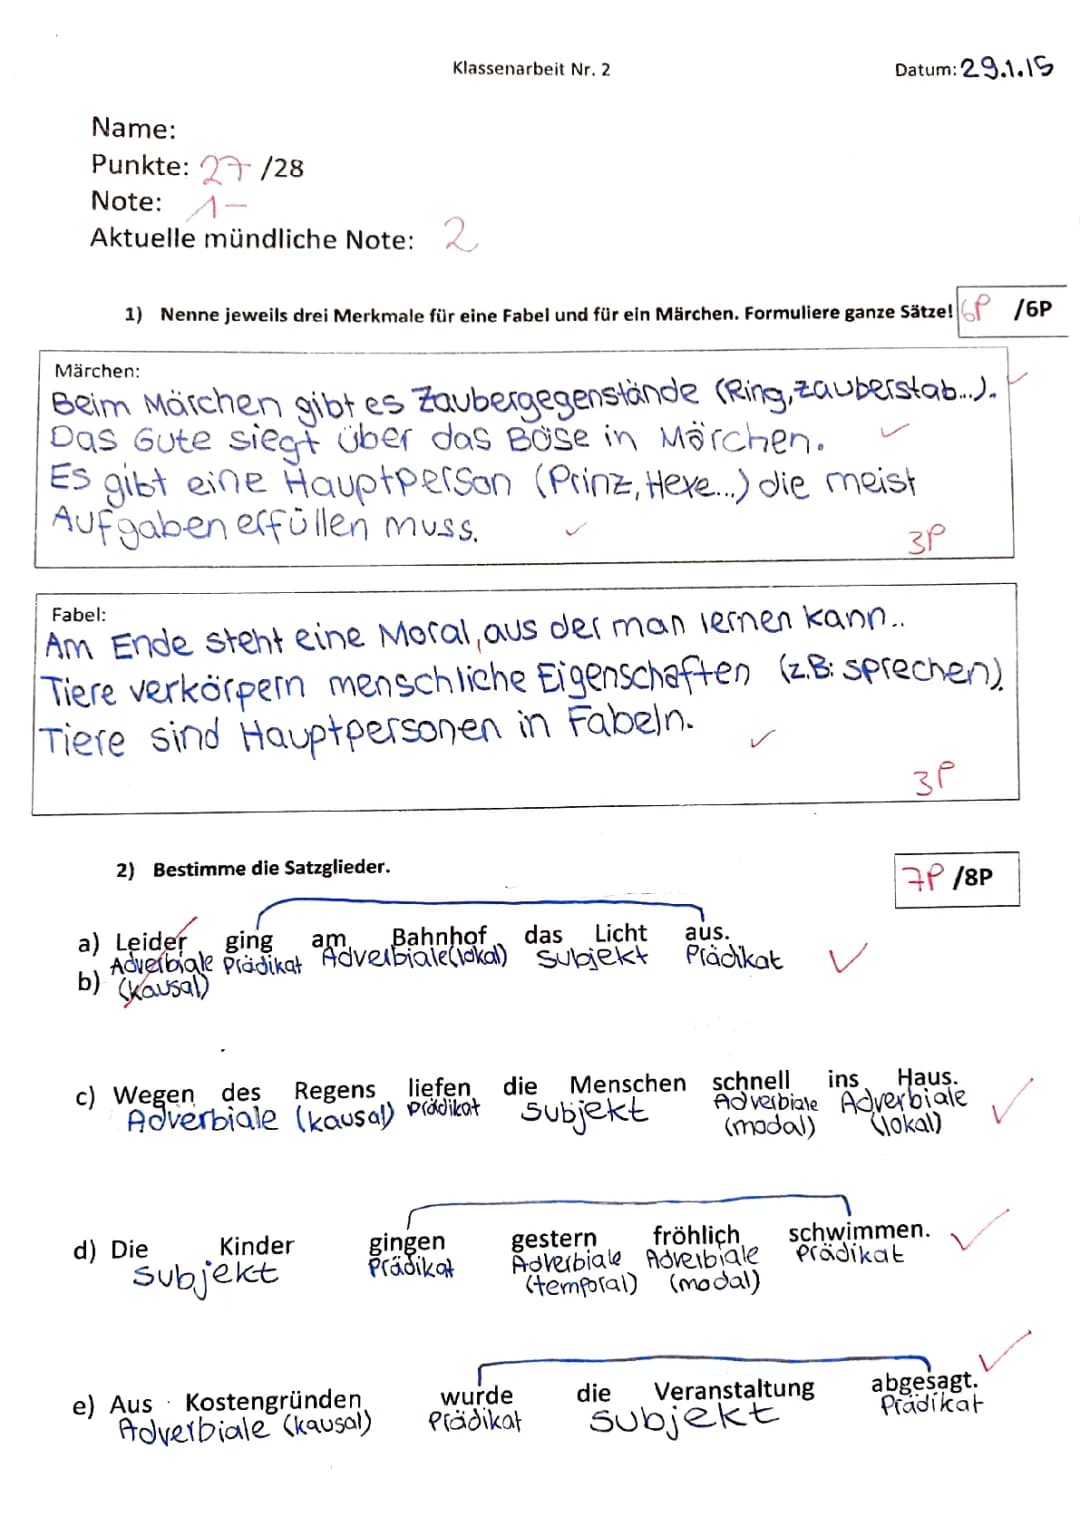 Klassenarbeit Nr. 2
Datum: 29.1.15
Name:
Punkte: 27 /28
Note: 1-
Aktuelle mündliche Note: 2
1) Nenne jeweils drei Merkmale für eine Fabel und für ein Märchen. Formuliere ganze Sätze! 6P /6P
Märchen:
Beim Märchen gibt es Zaubergegenstände (Ring, zauberstab...).
Das Gute siegt über das Böse in Märchen.
Es gibt eine Hauptperson (Prinz, Hexe...) die meist
Aufgaben erfüllen muss.
3P
Fabel:
Am Ende steht eine Moral, aus der man lernen kann..
Tiere verkörpern menschliche Eigenschaften (z.B: sprechen).
Tiere sind Hauptpersonen in Fabeln.
3P
2) Bestimme die Satzglieder. 7P /8P
a) Leider ging am Bahnhof das Licht aus.
Adverbiale Prädikat Adverbiale(lokal) Subjekt Prädikat
b) (kausal)
c) Wegen des Regens liefen die Menschen schnell ins Haus.
Adverbiale (kausal) Prädikat Subjekt Adverbiale Adverbiale
(modal) (lokal)
d) Die Kinder gingen gestern fröhlich schwimmen.
Subjekt Prädikat Adverbiale Adverbiale Prädikat
(temporal) (modal)
e) Aus Kostengründen wurde die Veranstaltung abgesagt.
Adverbiale (kausal) Prädikat Subjekt Prädikat